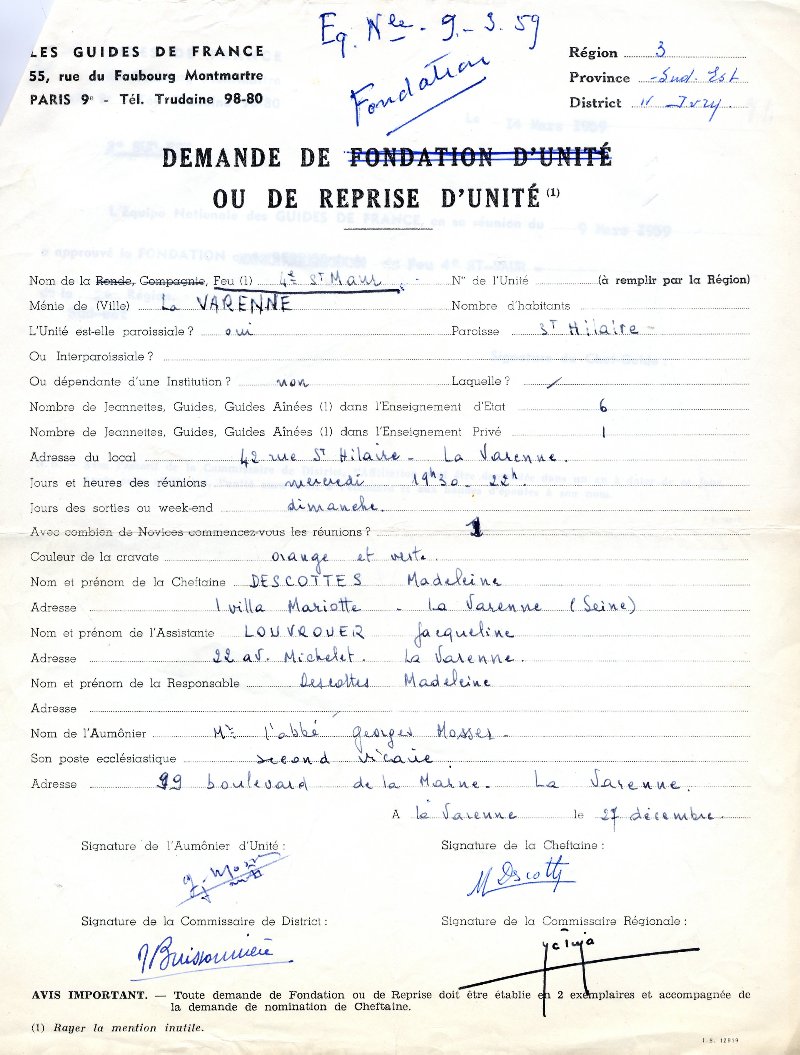 Eq. Nle - 9 - 3. 59
Fondation
LES GUIDES DE FRANCE
55, rue du Faubourg Montmartre
PARIS 9e - Tél. Trudaine 98-80
Région 3
Province Sud. Est
District Ivry
DEMANDE DE FONDATION D'UNITÉ
OU DE REPRISE D'UNITÉ (1)
Nom de la Ronde, Compagnie, Feu (1) 4e St Maur N° de l'Unité (à remplir par la Région)
Ménie de (Ville) La VARENNE Nombre d'habitants
L'Unité est-elle paroissiale ? oui Paroisse ST Hilaire -
Ou Interparoissiale ?
Ou dépendante d'une Institution ? non Laquelle ? /
Nombre de Jeannettes, Guides, Guides Aînées (1) dans l'Enseignement d'Etat 6
Nombre de Jeannettes, Guides, Guides Aînées (1) dans l'Enseignement Privé 1
Adresse du local 42 rue St Hilaire - La Varenne.
Jours et heures des réunions mercredi 19h30 - 22h
Jours des sorties ou week-end dimanche.
Avec combien de Novices commencez-vous les réunions ? 1
Couleur de la cravate orange et verte.
Nom et prénom de la Cheftaine DESCOTTES Madeleine
Adresse 1 villa Mariotte - La Varenne (Seine)
Nom et prénom de l'Assistante LOUVROUER Jacqueline
Adresse 22 av. Michelet. La Varenne.
Nom et prénom de la Responsable Descottes Madeleine
Adresse
Nom de l'Aumônier Mr l'abbé Georges Mosser -
Son poste ecclésiastique second vicaire
Adresse 99 boulevard de la Marne. La Varenne.
A la Varenne le 27 décembre.
Signature de l'Aumônier d'Unité :
Signature de la Cheftaine :
M Descotty
Signature de la Commissaire de District :
Signature de la Commissaire Régionale :
Buissonnière
AVIS IMPORTANT. — Toute demande de Fondation ou de Reprise doit être établie en 2 exemplaires et accompagnée de
la demande de nomination de Cheftaine.
(1) Rayer la mention inutile.